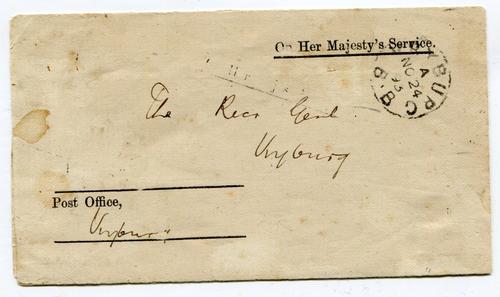 On Her Majesty's Service.
VRYBURG
A
NO 24
95
B.B
The Recr Genl.
Vryburg
Post Office,
Vryburg